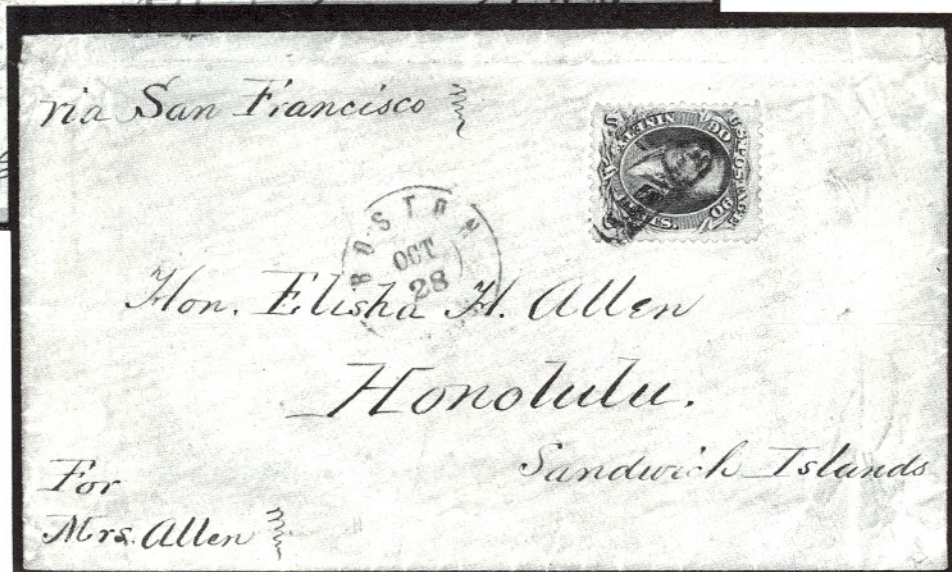 via San Francisco
U.S. POSTAGE
90 90
NINETY
BOSTON
OCT
28
Hon. Elisha H. Allen
Honolulu.
Sandwich Islands
For
Mrs. Allen